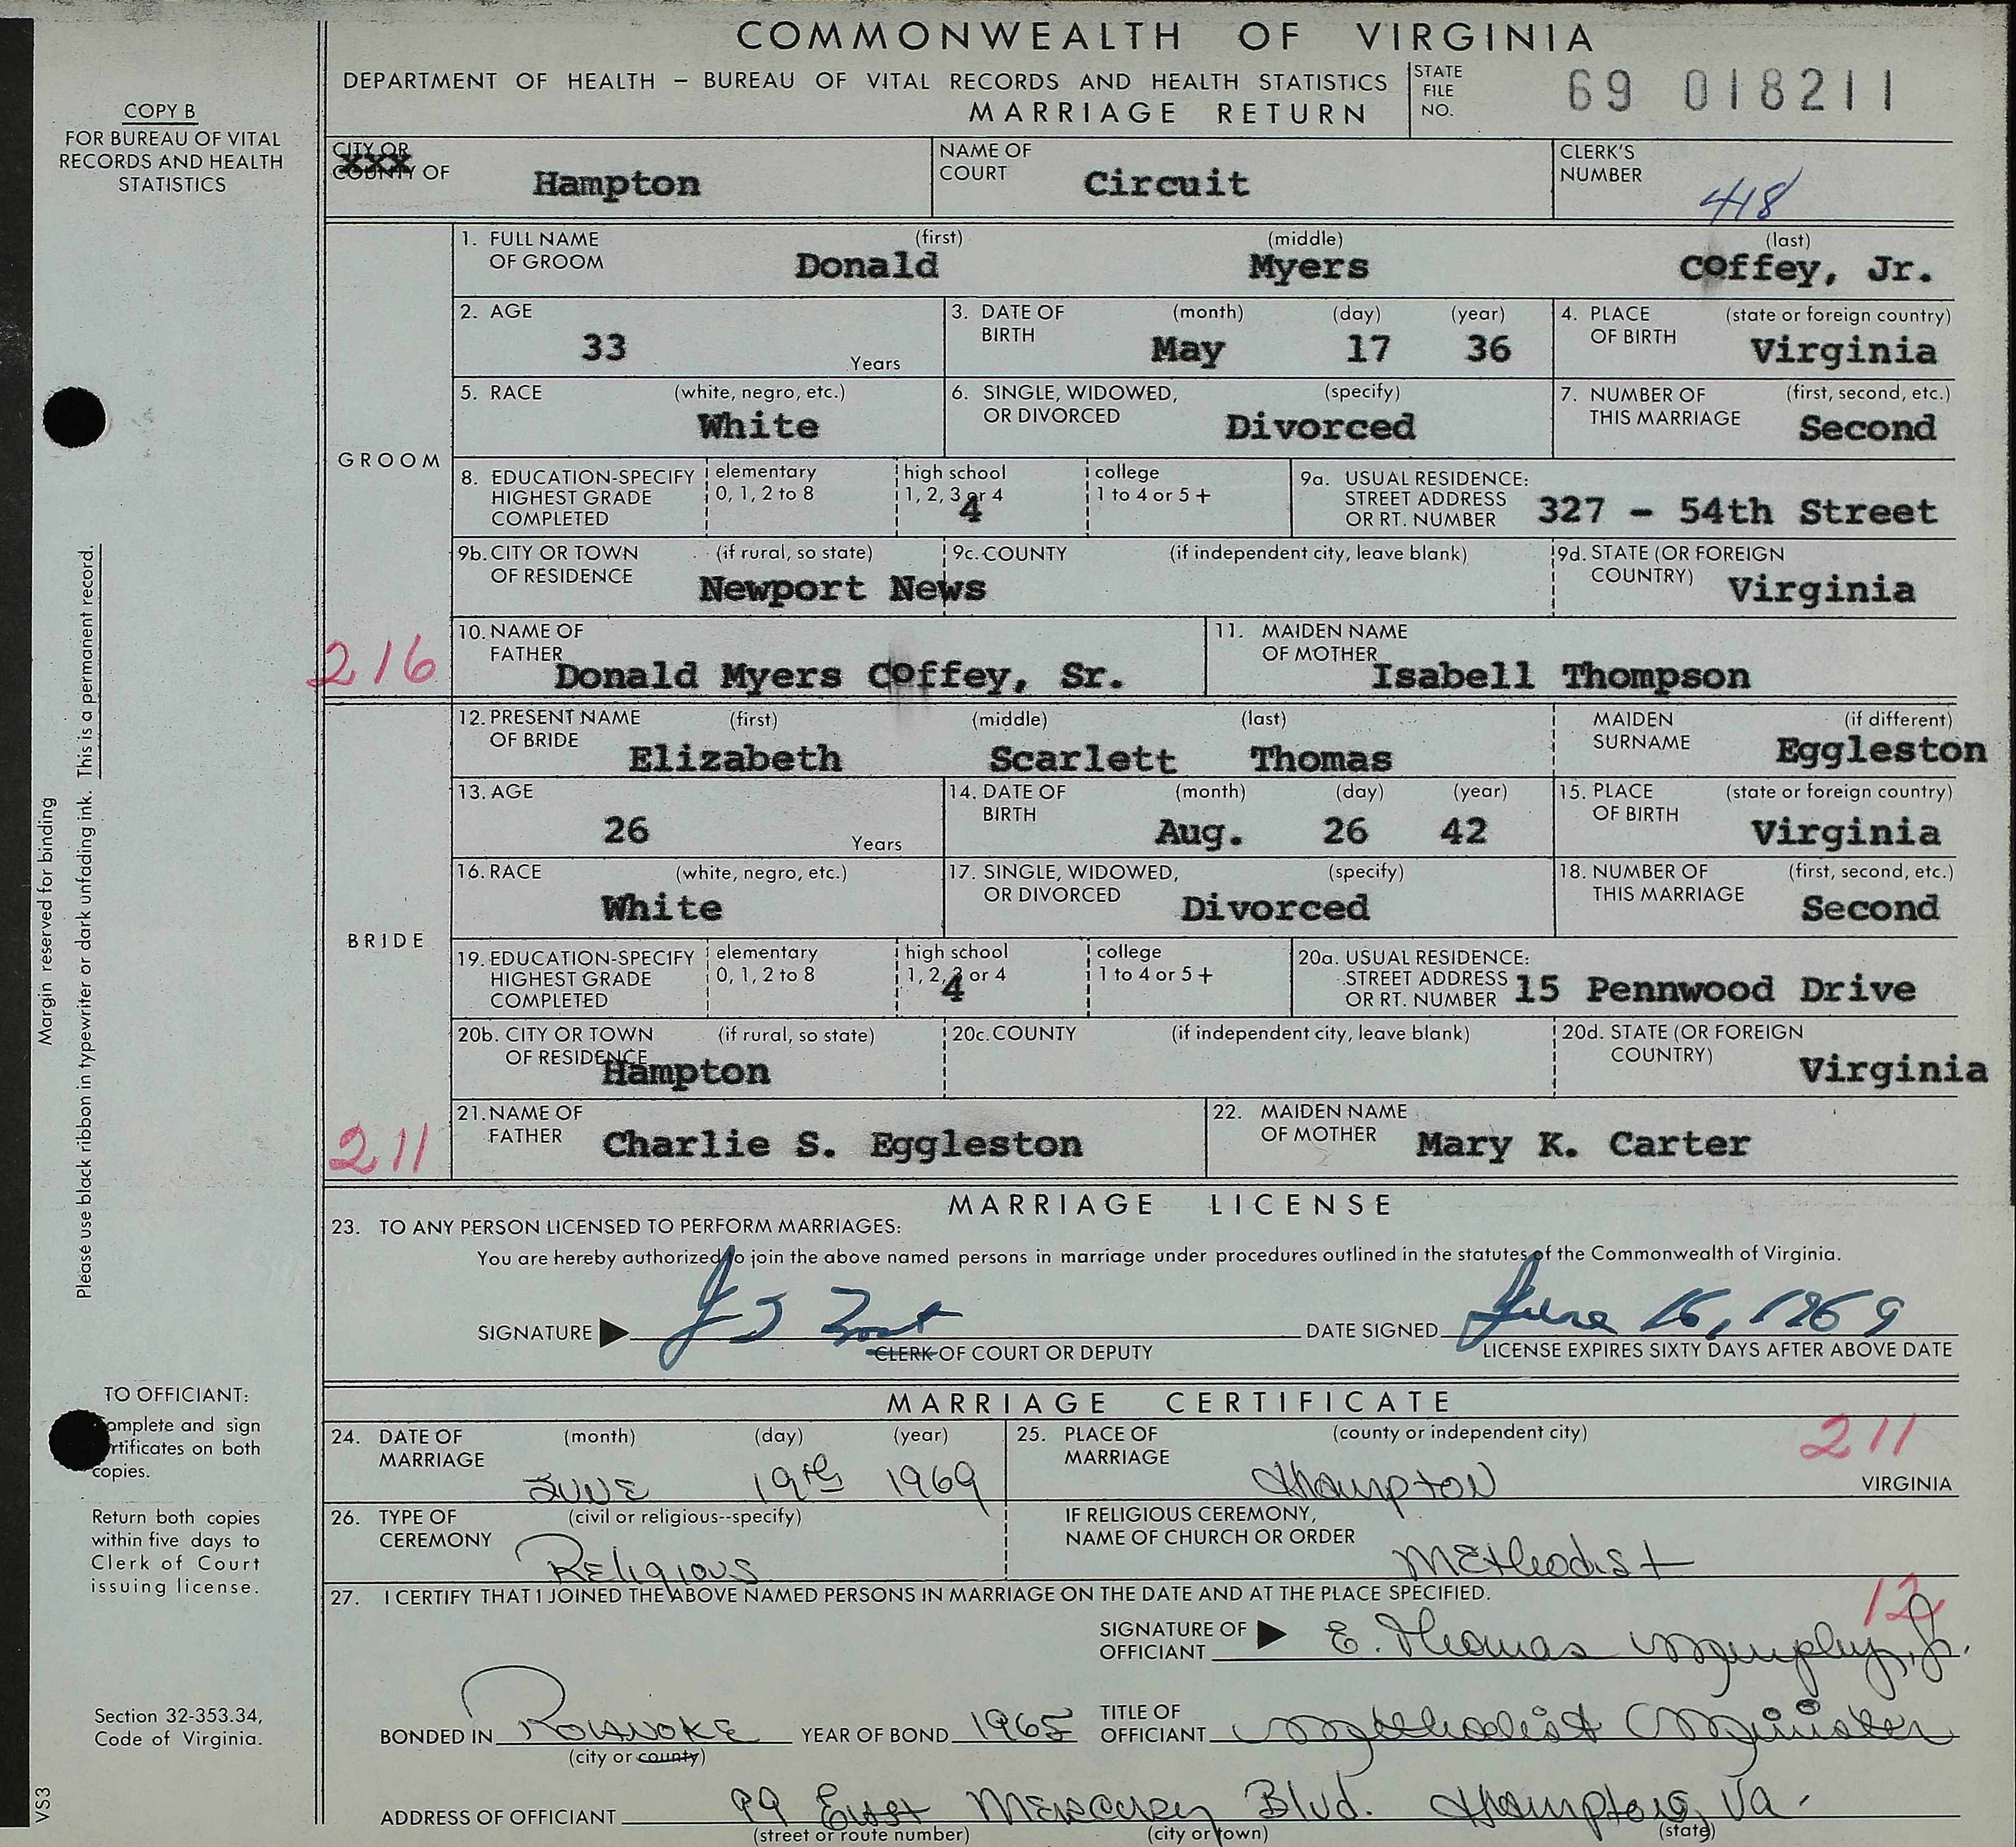 COMMONWEALTH OF VIRGINIA
DEPARTMENT OF HEALTH – BUREAU OF VITAL RECORDS AND HEALTH STATISTICS
MARRIAGE RETURN
STATE FILE NO. 69 018211
COPY B
FOR BUREAU OF VITAL
RECORDS AND HEALTH
STATISTICS
CITY OR
XXX
COUNTY OF Hampton
NAME OF COURT Circuit
CLERK'S NUMBER 418
GROOM
1. FULL NAME OF GROOM (first) Donald (middle) Myers (last) Coffey, Jr.
2. AGE 33 Years
3. DATE OF BIRTH (month) May (day) 17 (year) 36
4. PLACE OF BIRTH (state or foreign country) Virginia
5. RACE (white, negro, etc.) White
6. SINGLE, WIDOWED, OR DIVORCED (specify) Divorced
7. NUMBER OF THIS MARRIAGE (first, second, etc.) Second
8. EDUCATION-SPECIFY HIGHEST GRADE COMPLETED elementary 0, 1, 2 to 8 high school 1, 2, 3 or 4 4 college 1 to 4 or 5 +
9a. USUAL RESIDENCE: STREET ADDRESS OR RT. NUMBER 327 - 54th Street
9b. CITY OR TOWN OF RESIDENCE (if rural, so state) Newport News
9c. COUNTY (if independent city, leave blank)
9d. STATE (OR FOREIGN COUNTRY) Virginia
216
10. NAME OF FATHER Donald Myers Coffey, Sr.
11. MAIDEN NAME OF MOTHER Isabell Thompson
BRIDE
12. PRESENT NAME OF BRIDE (first) Elizabeth (middle) Scarlett (last) Thomas
MAIDEN SURNAME (if different) Eggleston
13. AGE 26 Years
14. DATE OF BIRTH (month) Aug. (day) 26 (year) 42
15. PLACE OF BIRTH (state or foreign country) Virginia
16. RACE (white, negro, etc.) White
17. SINGLE, WIDOWED, OR DIVORCED (specify) Divorced
18. NUMBER OF THIS MARRIAGE (first, second, etc.) Second
19. EDUCATION-SPECIFY HIGHEST GRADE COMPLETED elementary 0, 1, 2 to 8 high school 1, 2, 3 or 4 4 college 1 to 4 or 5 +
20a. USUAL RESIDENCE: STREET ADDRESS OR RT. NUMBER 15 Pennwood Drive
20b. CITY OR TOWN OF RESIDENCE (if rural, so state) Hampton
20c. COUNTY (if independent city, leave blank)
20d. STATE (OR FOREIGN COUNTRY) Virginia
211
21. NAME OF FATHER Charlie S. Eggleston
22. MAIDEN NAME OF MOTHER Mary K. Carter
MARRIAGE LICENSE
23. TO ANY PERSON LICENSED TO PERFORM MARRIAGES:
You are hereby authorized to join the above named persons in marriage under procedures outlined in the statutes of the Commonwealth of Virginia.
SIGNATURE DATE SIGNED June 16, 1969
CLERK OF COURT OR DEPUTY LICENSE EXPIRES SIXTY DAYS AFTER ABOVE DATE
MARRIAGE CERTIFICATE
24. DATE OF MARRIAGE (month) JUNE (day) 19th (year) 1969
25. PLACE OF MARRIAGE (county or independent city) Hampton 211 VIRGINIA
26. TYPE OF CEREMONY (civil or religious--specify) Religious
IF RELIGIOUS CEREMONY, NAME OF CHURCH OR ORDER Methodist
27. I CERTIFY THAT I JOINED THE ABOVE NAMED PERSONS IN MARRIAGE ON THE DATE AND AT THE PLACE SPECIFIED.
12
SIGNATURE OF OFFICIANT E. Thomas Murphy, Jr.
BONDED IN Roanoke (city or county) YEAR OF BOND 1965 TITLE OF OFFICIANT Methodist Minister
ADDRESS OF OFFICIANT 99 East Mercury Blvd. Hampton, Va.
(street or route number) (city or town) (state)
Margin reserved for binding
Please use black ribbon in typewriter or dark unfading ink. This is a permanent record.
TO OFFICIANT:
omplete and sign
rtificates on both
copies.
Return both copies
within five days to
Clerk of Court
issuing license.
Section 32-353.34,
Code of Virginia.
VS3